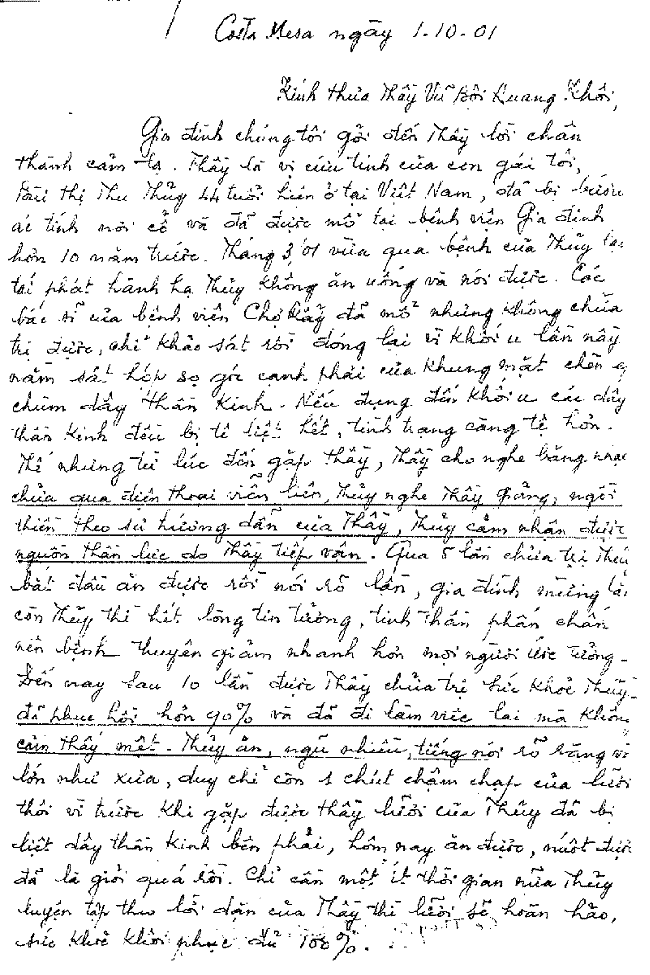 Costa Mesa ngày 1-10-01
Kính thưa Thầy Vũ Bội Quang Khôi,
Gia đình chúng tôi gởi đến Thầy lời chân
thành cảm tạ. Thầy là vị cứu tinh của con gái tôi,
Thị Thu Thủy 44 tuổi hiện ở tại Việt Nam, đã bị bướu
ác tính nơi cổ và đã được mổ tại bệnh viện Gia đình
hơn 10 năm trước. Tháng 3/01 vừa qua bệnh của Thủy lại
tái phát hành hạ Thủy không ăn uống và nói được. Các
bác sĩ của bệnh viện Chợ Rẫy đã mổ nhưng không chữa
trị được, chỉ khảo sát rồi đóng lại vì khối u lần này
nằm sát hóp sọ góc cạnh phải của khung mặt chồn
chùm dây thần kinh. Nếu đụng đến khối u các dây
thần kinh đều bị tê liệt hết, tình trạng càng tệ hơn.
Thế nhưng từ lúc đến gặp thầy, Thầy cho nghe băng nhạc
chữa qua điện thoại viễn liên, Thủy nghe Thầy giảng, ngồi
thiền theo sự hướng dẫn của Thầy, Thủy cảm nhận được
nguồn thần lực do Thầy tiếp vận. Qua 5 lần chữa trị Thủy
bắt đầu ăn được rồi nói rõ lần, gia đình mừng lắm
còn Thủy thì hết lòng tin tưởng, tinh thần phấn chấn
nên bệnh thuyên giảm nhanh hơn mọi người ước tưởng.
Đến nay sau 10 lần được Thầy chữa trị sức khỏe Thủy
đã phục hồi hơn 90% và đã đi làm việc lại mà không
cảm thấy mệt. Thủy ăn, ngủ nhiều, tiếng nói rõ ràng
lớn như xưa, duy chỉ còn 1 chút chậm chạp của lưỡi
thôi vì trước khi gặp được thầy lưỡi của Thủy đã bị
liệt dây thần kinh bên phải, hôm nay ăn được, nuốt được
đã là giỏi quá rồi. Chỉ cần một ít thời gian nữa Thủy
luyện tập theo lời dặn của Thầy thì lưỡi sẽ hoàn hảo,
sức khỏe khôi phục đủ 100%.